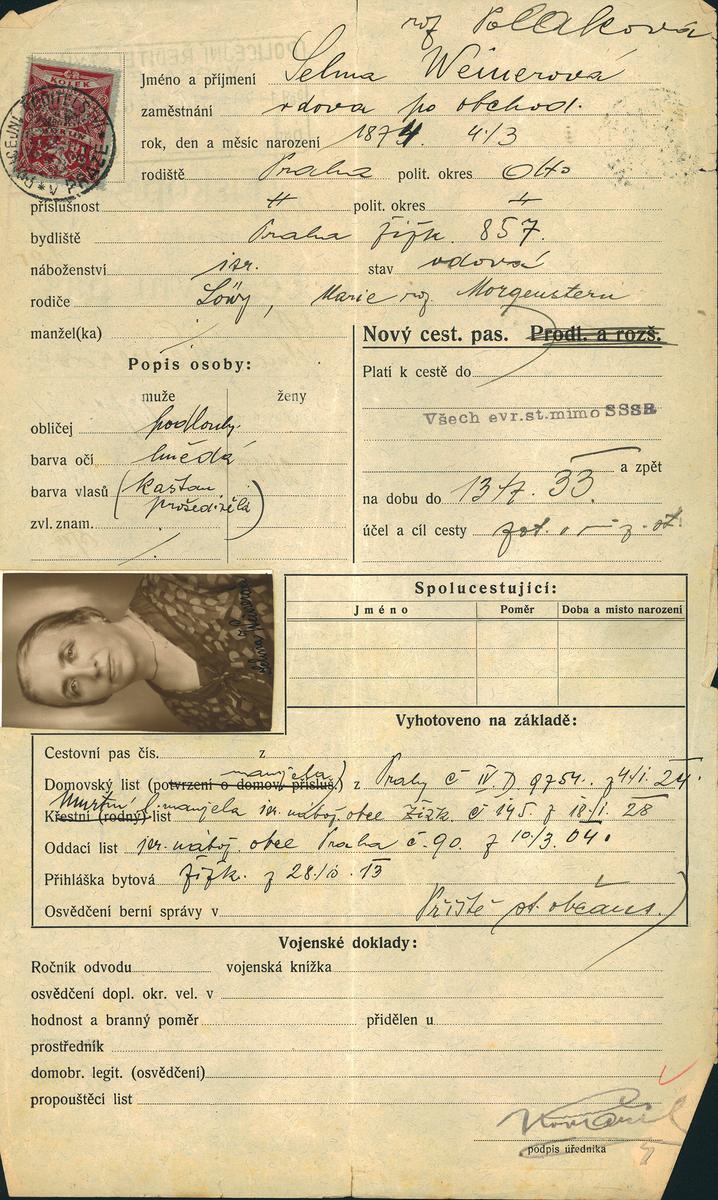 roz Pollaková
Jméno a příjmení Selma Weinerová
zaměstnání vdova po obchod.
rok, den a měsíc narození 1874 4./3
rodiště Praha polit. okres
příslušnost " polit. okres "
bydliště Praha Žižk. 857.
náboženství izr. stav vdová
rodiče Löwy, Marie roz Morgenstern
manžel(ka)
Nový cest. pas. Prodl. a rozš.
Popis osoby:
muže ženy
obličej podlouhý.
barva očí hnědá
barva vlasů (kaštan
prošedivělá)
zvl. znam.
Platí k cestě do
Všech evr. st. mimo SSSR
a zpět
na dobu do 13/7. 33.
účel a cíl cesty
Selma Weinerová
Spolucestující:
Jméno Poměr Doba a místo narození
Vyhotoveno na základě:
Cestovní pas čís. z
manžela
Domovský list (potvrzení o domov. přísluš.) z Prahy č IV. D. 9754. z 4/I. 24.
Křestní (rodný) list manžela izr. nábož. obec Žižk. č 145. z 18/I. 28
Oddací list izr. nábož. obec Praha č. 90. z 10/3. 04.
Přihláška bytová Žižk. z 28/10. 13
Osvědčení berní správy v Příště st. občans.
Vojenské doklady:
Ročník odvodu vojenská knížka
osvědčení dopl. okr. vel. v
hodnost a branný poměr přidělen u
prostředník
domobr. legit. (osvědčení)
propouštěcí list
podpis úředníka